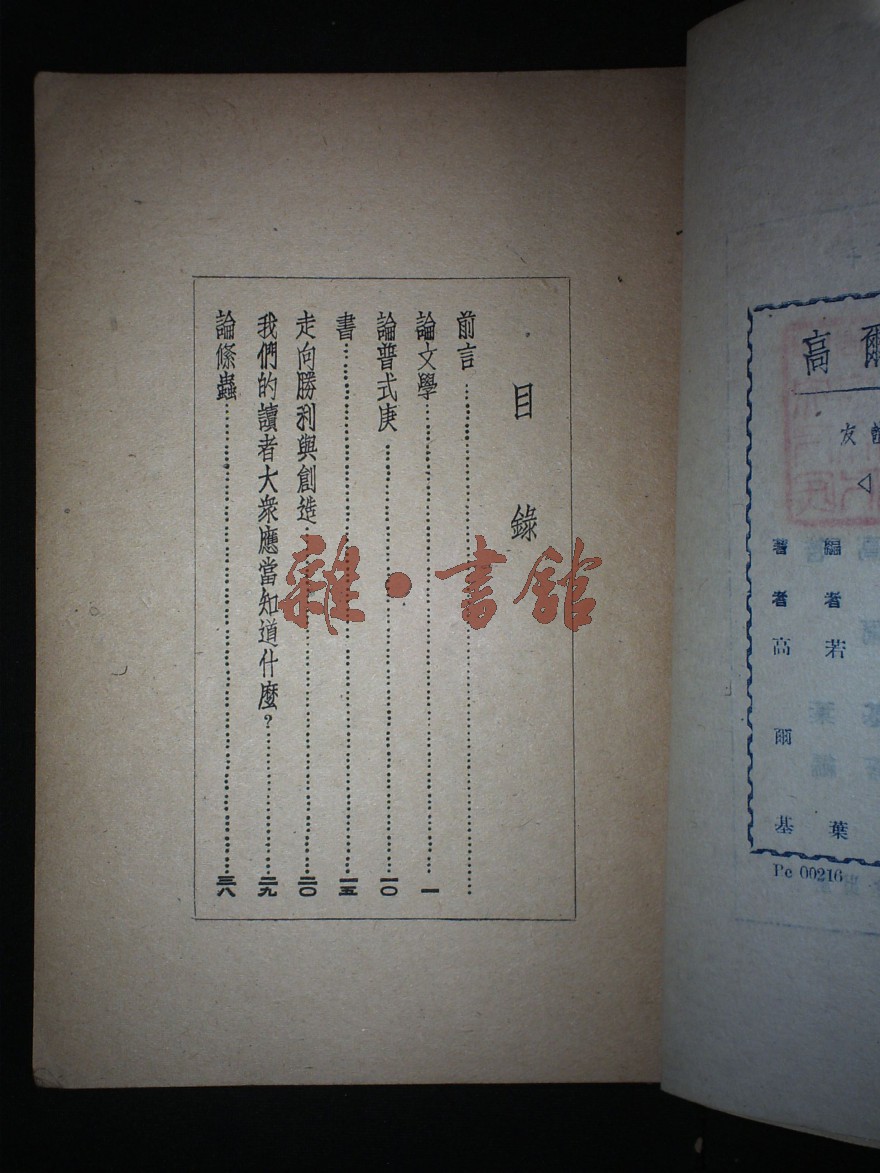 目錄
前言
論文學 一
論普式庚 一〇
書 一五
走向勝利與創造 二〇
我們的讀者大衆應當知道什麼? 二九
論條蟲 三八
雜·書館
高爾
友誼
編者 若 葉
著者 高爾基
Pc 00216